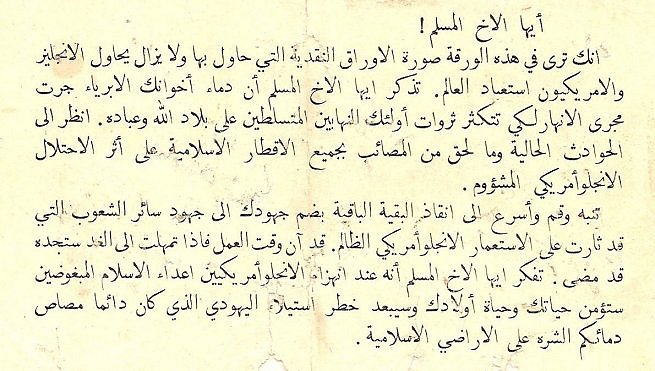 أيها الاخ المسلم !
انك ترى في هذه الورقة صورة الاوراق النقدية التي حاول بها ولا يزال يحاول الانجليز
والامريكيون استعباد العالم . تذكر ايها الاخ المسلم أن دماء أخوانك الابرياء جرت
مجرى الانهار لكي تتكثر ثروات أولئك النهابين المتسلطين على بلاد الله وعباده . انظر الى
الحوادث الحالية وما لحق من المصائب بجميع الاقطار الاسلامية على أثر الاحتلال
الانجلوأمريكي المشؤوم .
تنبه وقم وأسرع الى انقاذ البقية الباقية بضم جهودك الى جهود سائر الشعوب التي
قد ثارت على الاستعمار الانجلوأمريكي الظالم . قد آن وقت العمل فاذا تمهلت الى الغد ستجده
قد مضى . تفكر ايها الاخ المسلم أنه عند انهزام الانجلوأمريكيين اعداء الاسلام المبغوضين
ستؤمن حياتك وحياة أولادك وسيبعد خطر استيلاء اليهودي الذي كان دائما مصاص
دمائكم الشره على الاراضي الاسلامية .